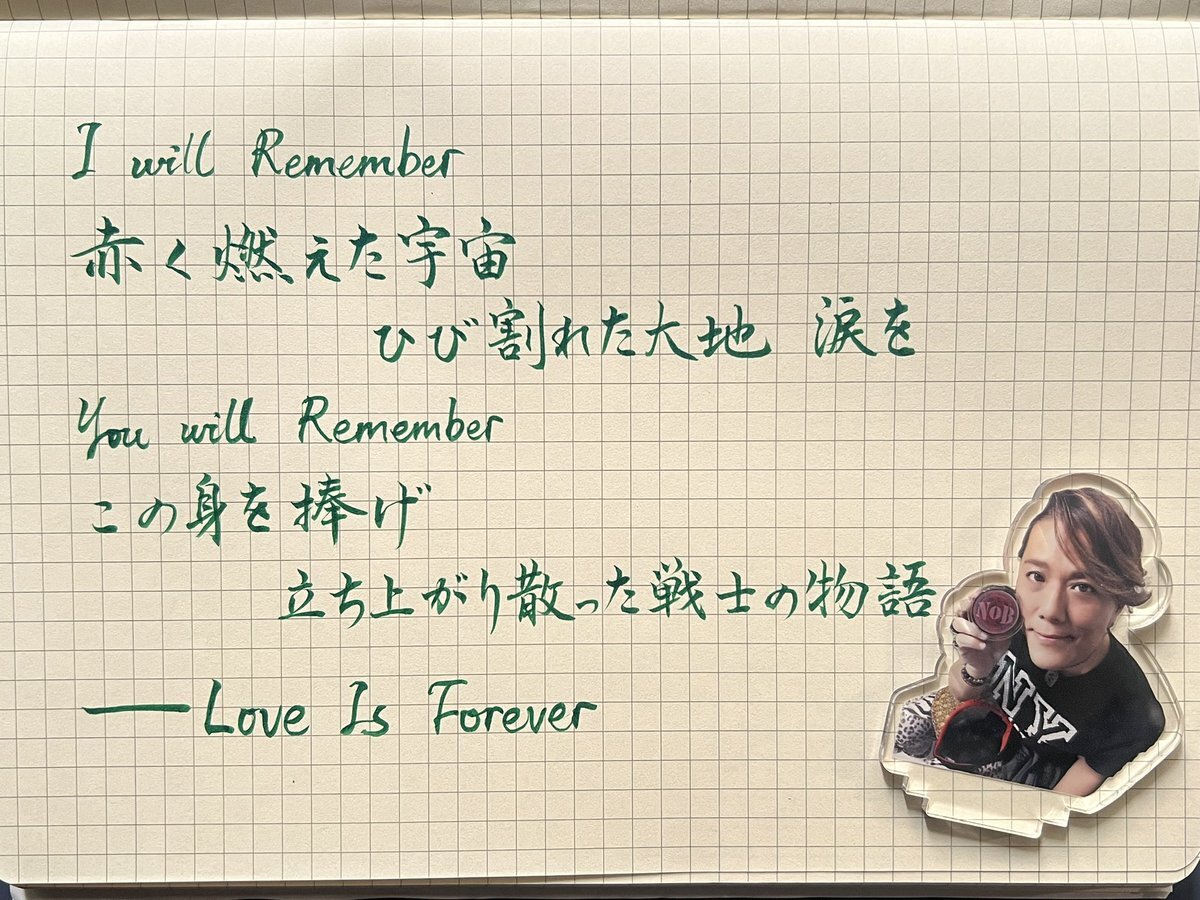 I will Remember
赤く燃えた宇宙
ひび割れた大地 涙を
You will Remember
この身を捧げ
立ち上がり散った戦士の物語
——Love Is Forever
NoB
NY